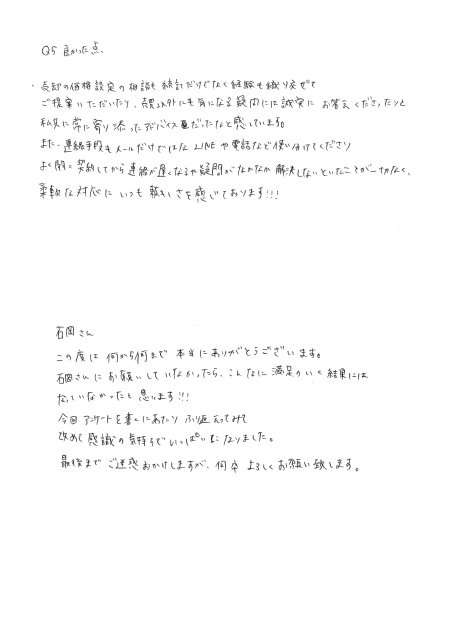 Q5 良かった点、
・売却の価格設定の相談も統計だけでなく経験も織り交ぜて
ご提案いただいたり、売買以外にも気になる疑問には誠実に お答えくださったりと
私共に常に寄り添ったアドバイス量だったなと感じています。
また、連絡手段もメールだけではなく LINE や電話など使い分けてくださり
よく聞く契約してから連絡が遅くなるや疑問がなかなか解決しないといったことが一切なく、
柔軟な対応にいつも頼もしさを感じております!!!
石岡さん
この度は 何から何まで 本当にありがとうございます。
石岡さんにお願いしていなかったら、こんなに満足のいく結果には
なっていなかったと思います!!!
今回アンケートを書くにあたり ふり返ってみて
改めて感謝の気持ちでいっぱいになりました。
最後まで ご迷惑おかけしますが、何卒 よろしくお願い致します。